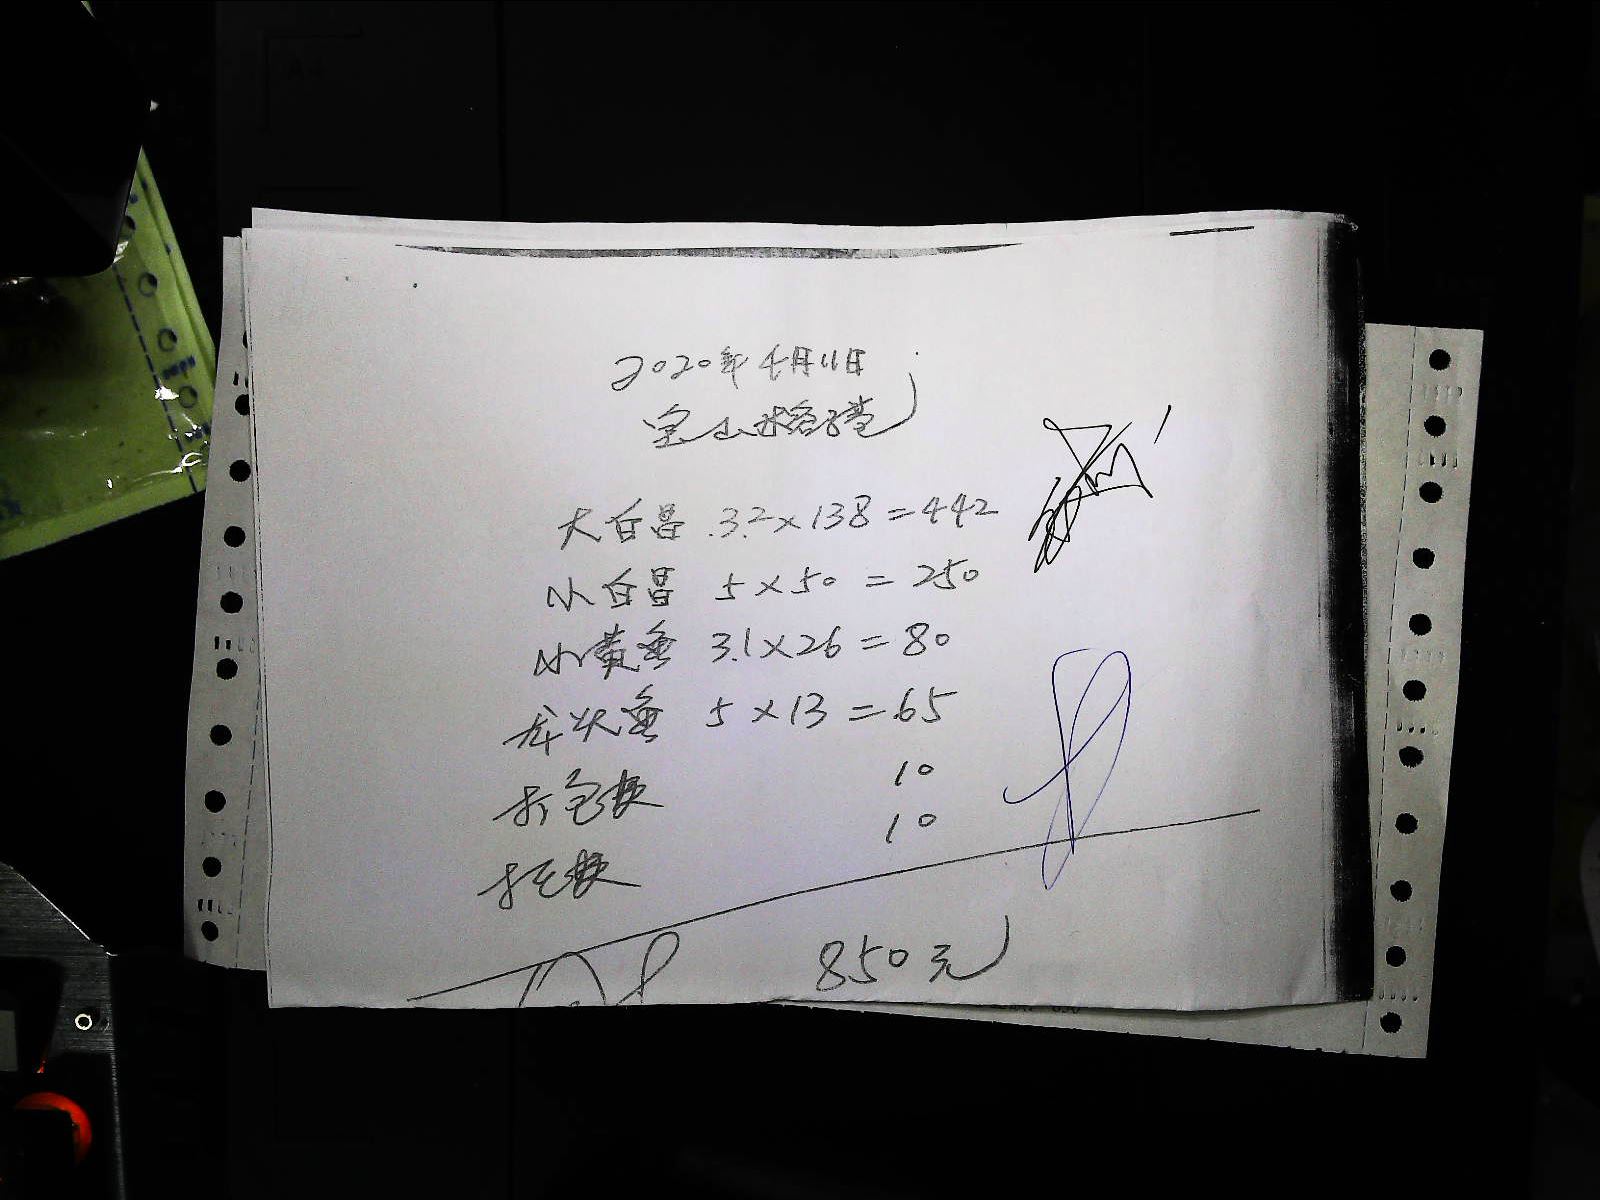 2020年4月11日
宝山
大白昌 3.2×138=442
小白昌 5×50=250
小黄鱼 3.1×26=80
龙头鱼 5×13=65
打包快 10
打包快 10
850元